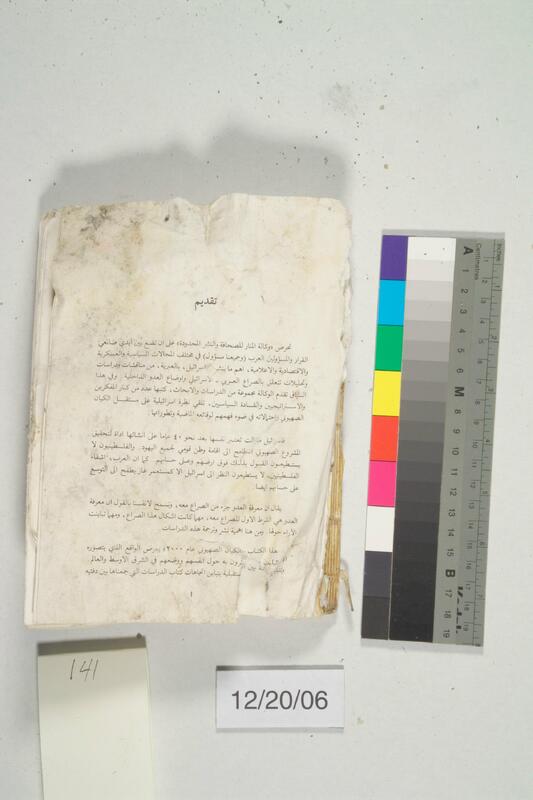 تقديم
تحرص «وكالة المنار للصحافة والنشر المحدودة» على ان تضع بين ايدي صانعي
القرار والمسؤولين العرب (وجميعنا مسؤول) في مختلف المجالات السياسية والعسكرية
والاقتصادية والاعلامية، اهم ما ينشر اسرائيل، بالعبرية، من مناقشات ودراسات
وتحليلات تتعلق بالصراع العربي ـ الاسرائيلي واوضاع العدو الداخلية. وفي هذا
السياق تقدم الوكالة مجموعة من الدراسات والابحاث، كتبها عدد من كبار المفكرين
والاستراتيجيين والقادة السياسيين، تلقي نظرة اسرائيلية على مستقبل الكيان
الصهيوني واحتمالاته في ضوء فهمهم لوقائعه الماضية وتطوراتها.
فاسرائيل مازالت تعتبر نفسها بعد نحو ٤٠ عاما على انشائها اداة لتحقيق
المشروع الصهيوني الطامح الى اقامة وطن قومي لجميع اليهود. والفلسطينيون لا
يستطيعون القبول بذلك فوق ارضهم وعلى حسابهم. كما ان العرب، اشقاء
الفلسطينيين، لا يستطيعون النظر الى اسرائيل الا كمستعمر غاز يطمح الى التوسع
على حسابهم ايضا.
يقال ان معرفة العدو جزء من الصراع معه، ونسمح لانفسنا بالقول ان معرفة
العدو هي الشرط الاول للصراع معه، مهما كانت اشكال هذا الصراع، ومهما تباينت
الآراء حولها. ومن هنا اهمية نشر وترجمة هذه الدراسات.
هذا الكتاب «الكيان الصهيوني عام ٢٠٠٠» يعرض الواقع الذي يتصوره
به حول انفسهم ووضعهم في الشرق الاوسط والعالم
بتباين اتجاهات كتاب الدراسات التي جمعناها بين دفتيه
١
141
12/20/06
Inches
Centimetres
A 1 2 3 4 5 6 M 8 9 10 11 12 13 14 15 B 17 18 19